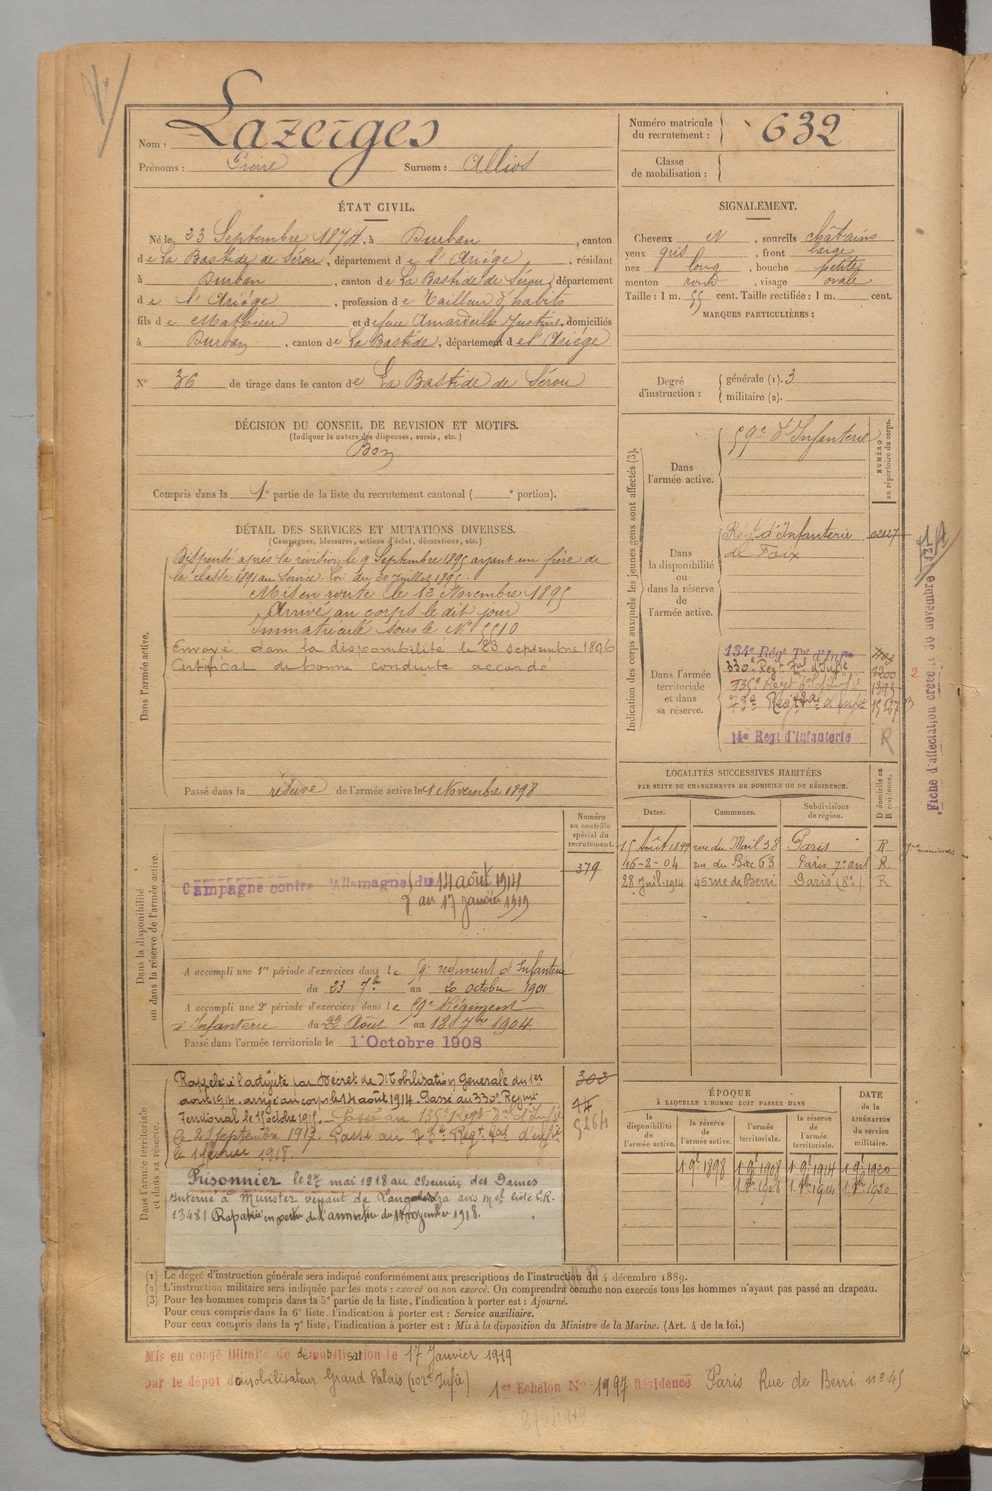 Nom : Lazerges
Prénoms : Pierre Surnom : Allios
Numéro matricule du recrutement : 632
Classe de mobilisation :
ÉTAT CIVIL.
Né le 23 Septembre 1874, à Durban, canton
de La Bastide de Sérou, département de l'Ariége, résidant
à Durban, canton de La Bastide de Sérou, département
de l'Ariége, profession de Tailleur d'habits
fils de Mathieu et de feue Justine, domiciliés
à Durban, canton de La Bastide, département de l'Ariége
N° 36 de tirage dans le canton de La Bastide de Sérou
SIGNALEMENT.
Cheveux N, sourcils châtains
yeux gris, front large
nez long, bouche petite
menton rond, visage ovale
Taille : 1 m. 55 cent. Taille rectifiée : 1 m. cent.
MARQUES PARTICULIÈRES :
Degré d'instruction : générale (1). 3
militaire (2).
DÉCISION DU CONSEIL DE REVISION ET MOTIFS.
(Indiquer la nature des dispenses, sursis, etc.)
Bon
Compris dans la 1e partie de la liste du recrutement cantonal ( e portion).
DÉTAIL DES SERVICES ET MUTATIONS DIVERSES.
(Campagnes, blessures, actions d'éclat, décorations, etc.)
Dans l'armée active.
Dispensé après la révision le 9 Septembre 1895 ayant un frère de
la classe 1891 au Service. Loi du 20 Juillet 1895.
Mis en route le 13 Novembre 1895
Arrivé au corps le dit jour
Immatriculé sous le N° 5510
Envoyé dans la disponibilité le 23 septembre 1896
Certificat de bonne conduite accordé
Passé dans la réserve de l'armée active le 1 Novembre 1898
Indication des corps auxquels les jeunes gens sont affectés (3).
NUMÉRO au répertoire du corps.
Dans l'armée active.
59e d'Infanterie
Dans la disponibilité ou dans la réserve de l'armée active.
Régt d'Infanterie
de Foix
Dans l'armée territoriale et dans sa réserve.
134e Régt Tal d'Infie
330e Régt Tal d'Infie 1200
135e Regt Tal d'Infie 1393
73e Regt Tal d'Infie
14e Regt d'Infanterie R
Fiche d'affectation créée le 30 novembre
LOCALITÉS SUCCESSIVES HABITÉES
PAR SUITE DE CHANGEMENTS DE DOMICILE OU DE RÉSIDENCE.
Dates. Communes. Subdivisions de région. D domicile ou R résidence.
15 Août 1899 rue du Mail 38 Paris R
16-2-04 rue du Bac 63 Paris 7e arrt R
28 Juil. 1914 45 rue de Berri Paris (8e) R
Dans la disponibilité ou dans la réserve de l'armée active.
Numéro au contrôle spécial du recrutement.
379
Campagne contre l'Allemagne du 14 août 1914
au 17 janvier 1919
A accompli une 1re période d'exercices dans le 59e régiment d'Infanterie
du 23 7bre au 20 octobre 1901
A accompli une 2e période d'exercices dans le 59e Régiment
d'Infanterie du 22 Août au 18 7bre 1904
Passé dans l'armée territoriale le 1er Octobre 1908
Dans l'armée territoriale et dans sa réserve.
303
5264
Rappelé à l'activité par Décret de Mobilisation Generale du 1er
août 1914. arrivé au corps le 14 août 1914. Passé au 330e Régimt
Territorial le 15 octobre 1915. Passé au 135e Regt Tal d'Infie
le 21 septembre 1917. Passé au 73e Regt Tal d'Infie
le 1 février 1918.
Prisonnier le 27 mai 1918 au Chemin des Dames
interné à Munster venant de Langensalza avis Mel liste C.R.
13481 Rapatrié en vertu de l'armistice du 11 novembre 1918.
ÉPOQUE
À LAQUELLE L'HOMME DOIT PASSER DANS
la disponibilité de l'armée active. la réserve de l'armée active. l'armée territoriale. la réserve de l'armée territoriale.
DATE de la LIBÉRATION du service militaire.
1 9e 1898 1 9e 1908 1 9e 1914 1 9e 1920
1 8bre 1908 1 8bre 1914 1 8bre 1920
(1) Le degré d'instruction générale sera indiqué conformément aux prescriptions de l'instruction du 4 décembre 1889.
(2) L'instruction militaire sera indiquée par les mots : exercé ou non exercé. On comprendra comme non exercés tous les hommes n'ayant pas passé au drapeau.
(3) Pour les hommes compris dans la 5e partie de la liste, l'indication à porter est : Ajourné.
Pour ceux compris dans la 6e liste, l'indication à porter est : Service auxiliaire.
Pour ceux compris dans la 7e liste, l'indication à porter est : Mis à la disposition du Ministre de la Marine. (Art. 4 de la loi.)
Mis en congé illimité de démobilisation le 17 Janvier 1919
par le dépôt démobilisateur Grand Palais (102e Infie) 1er Echelon N° 1997 Résidence Paris Rue de Berri n° 45